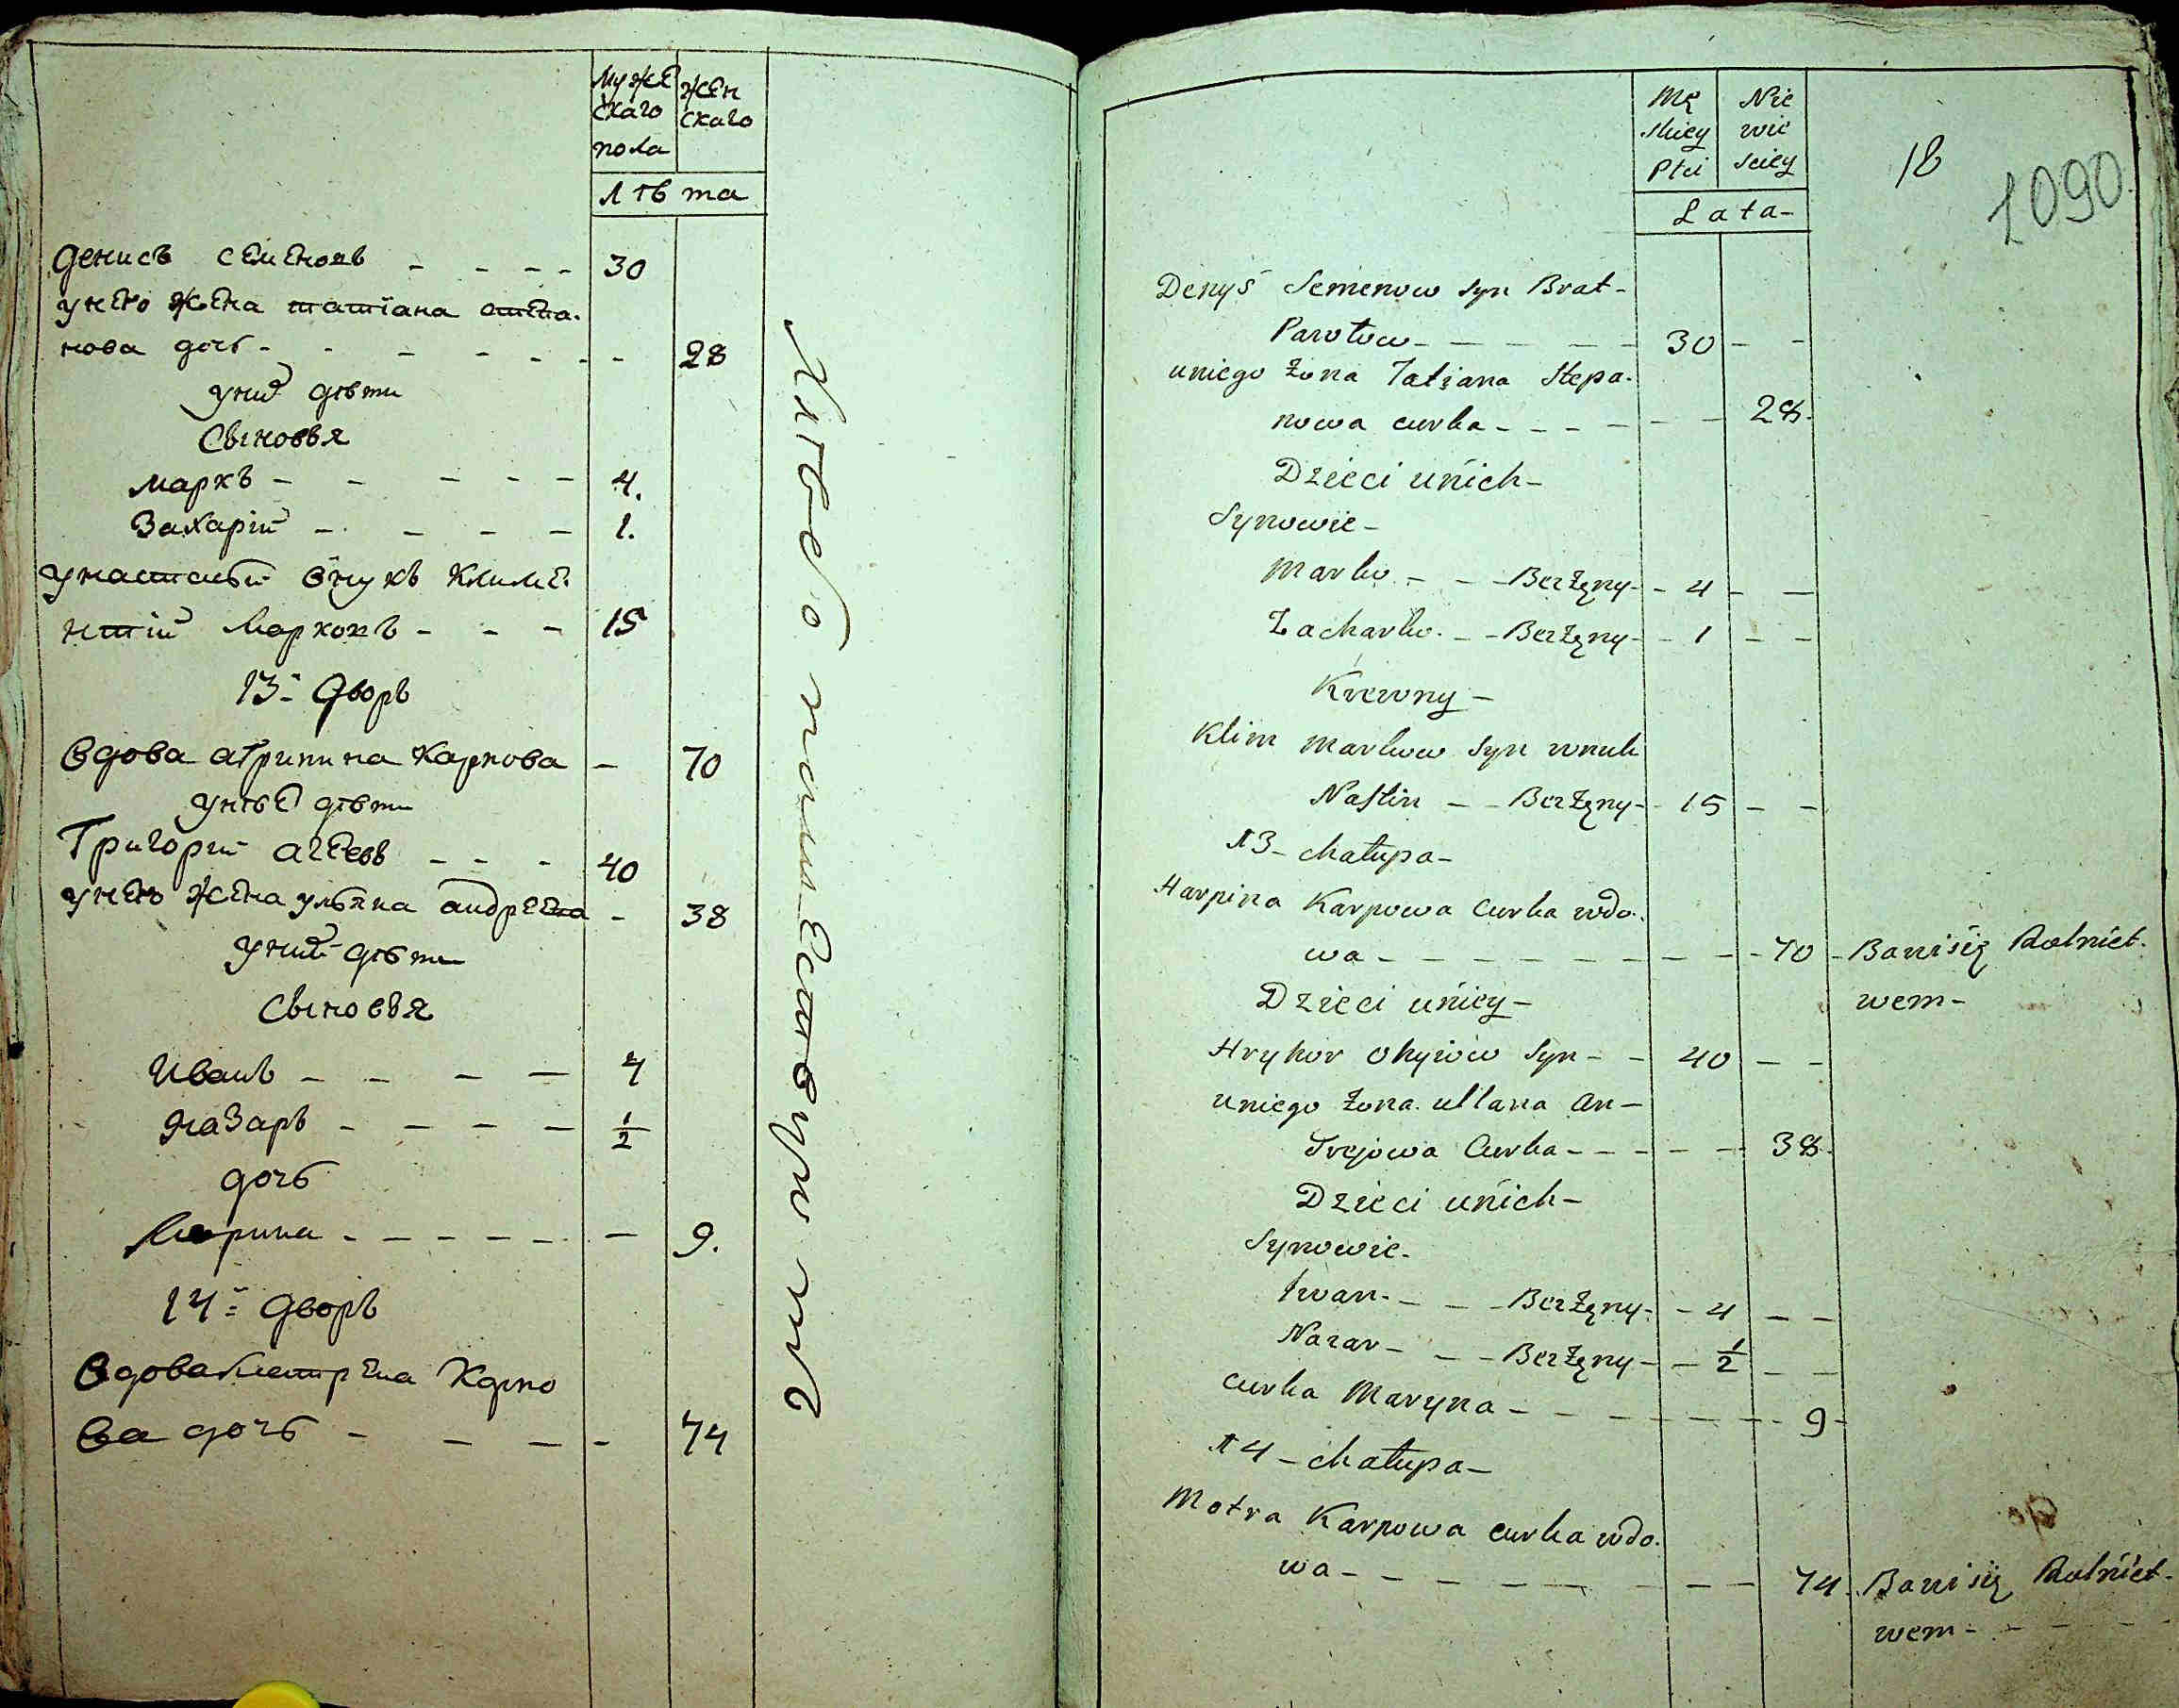 Муже
скаго
пола
жен
скаго
лѣта
денисъ семеновъ - - - - 30
унего жена татіана степа.
нова дочь - - - - - - - 28
уних дѣти
Сыновья
маркъ - - - - - 4.
Захарій - - - - 1.
унастасьи внукъ климе.
нтій Марковъ - - - 15
13-й Дворъ
Вдова агрипина карпова - 70
унѣе дѣти
Григорій агеевъ - - - 40
унего жена ульяна андреева - 38
уних дѣти
Сыновья
Иванъ - - - - 4
Назаръ - - - - 1/2
дочь
Марина - - - - - - 9.
14-й дворъ
Вдова Матрена Карпо
ва дочь - - - - 74
Mę
skiey
Płci
Nie
wie
sciey
Lata-
18
1090
Denys Semenow syn Brat-
Parotow - - - - - 30 - -
uniego żona Tatjana Stepa-
nowa curka - - - - - - 28.
Dzieci unich-
Synowie-
Marko - - - Bezżęny - - 4 - -
Zacharko - - Bezżęny - - 1 - -
Krewny-
Klim Markow syn wnuk
Nastin - - Bezżęny - - 15 - -
13- chałupa-
Harpina Karpowa curka wdo.
wa - - - - - - - - - 70 - Bawi się Rolnict.
wem-
Dzieci uniey-
Hryhor Ohyiow Syn - - 40 - -
uniego żona ullana An-
drejowa Curka - - - - - 38.
Dzieci unich-
Synowie-
Iwan - - - Bezżęny - - 4 - -
Nazar - - - Bezżęny - - 1/2 - -
curka Maryna - - - - - - - 9 -
14- chałupa-
Motra Karpowa curka wdo.
wa - - - - - - - - 74. Bawi się Rolnict-
wem - - - -